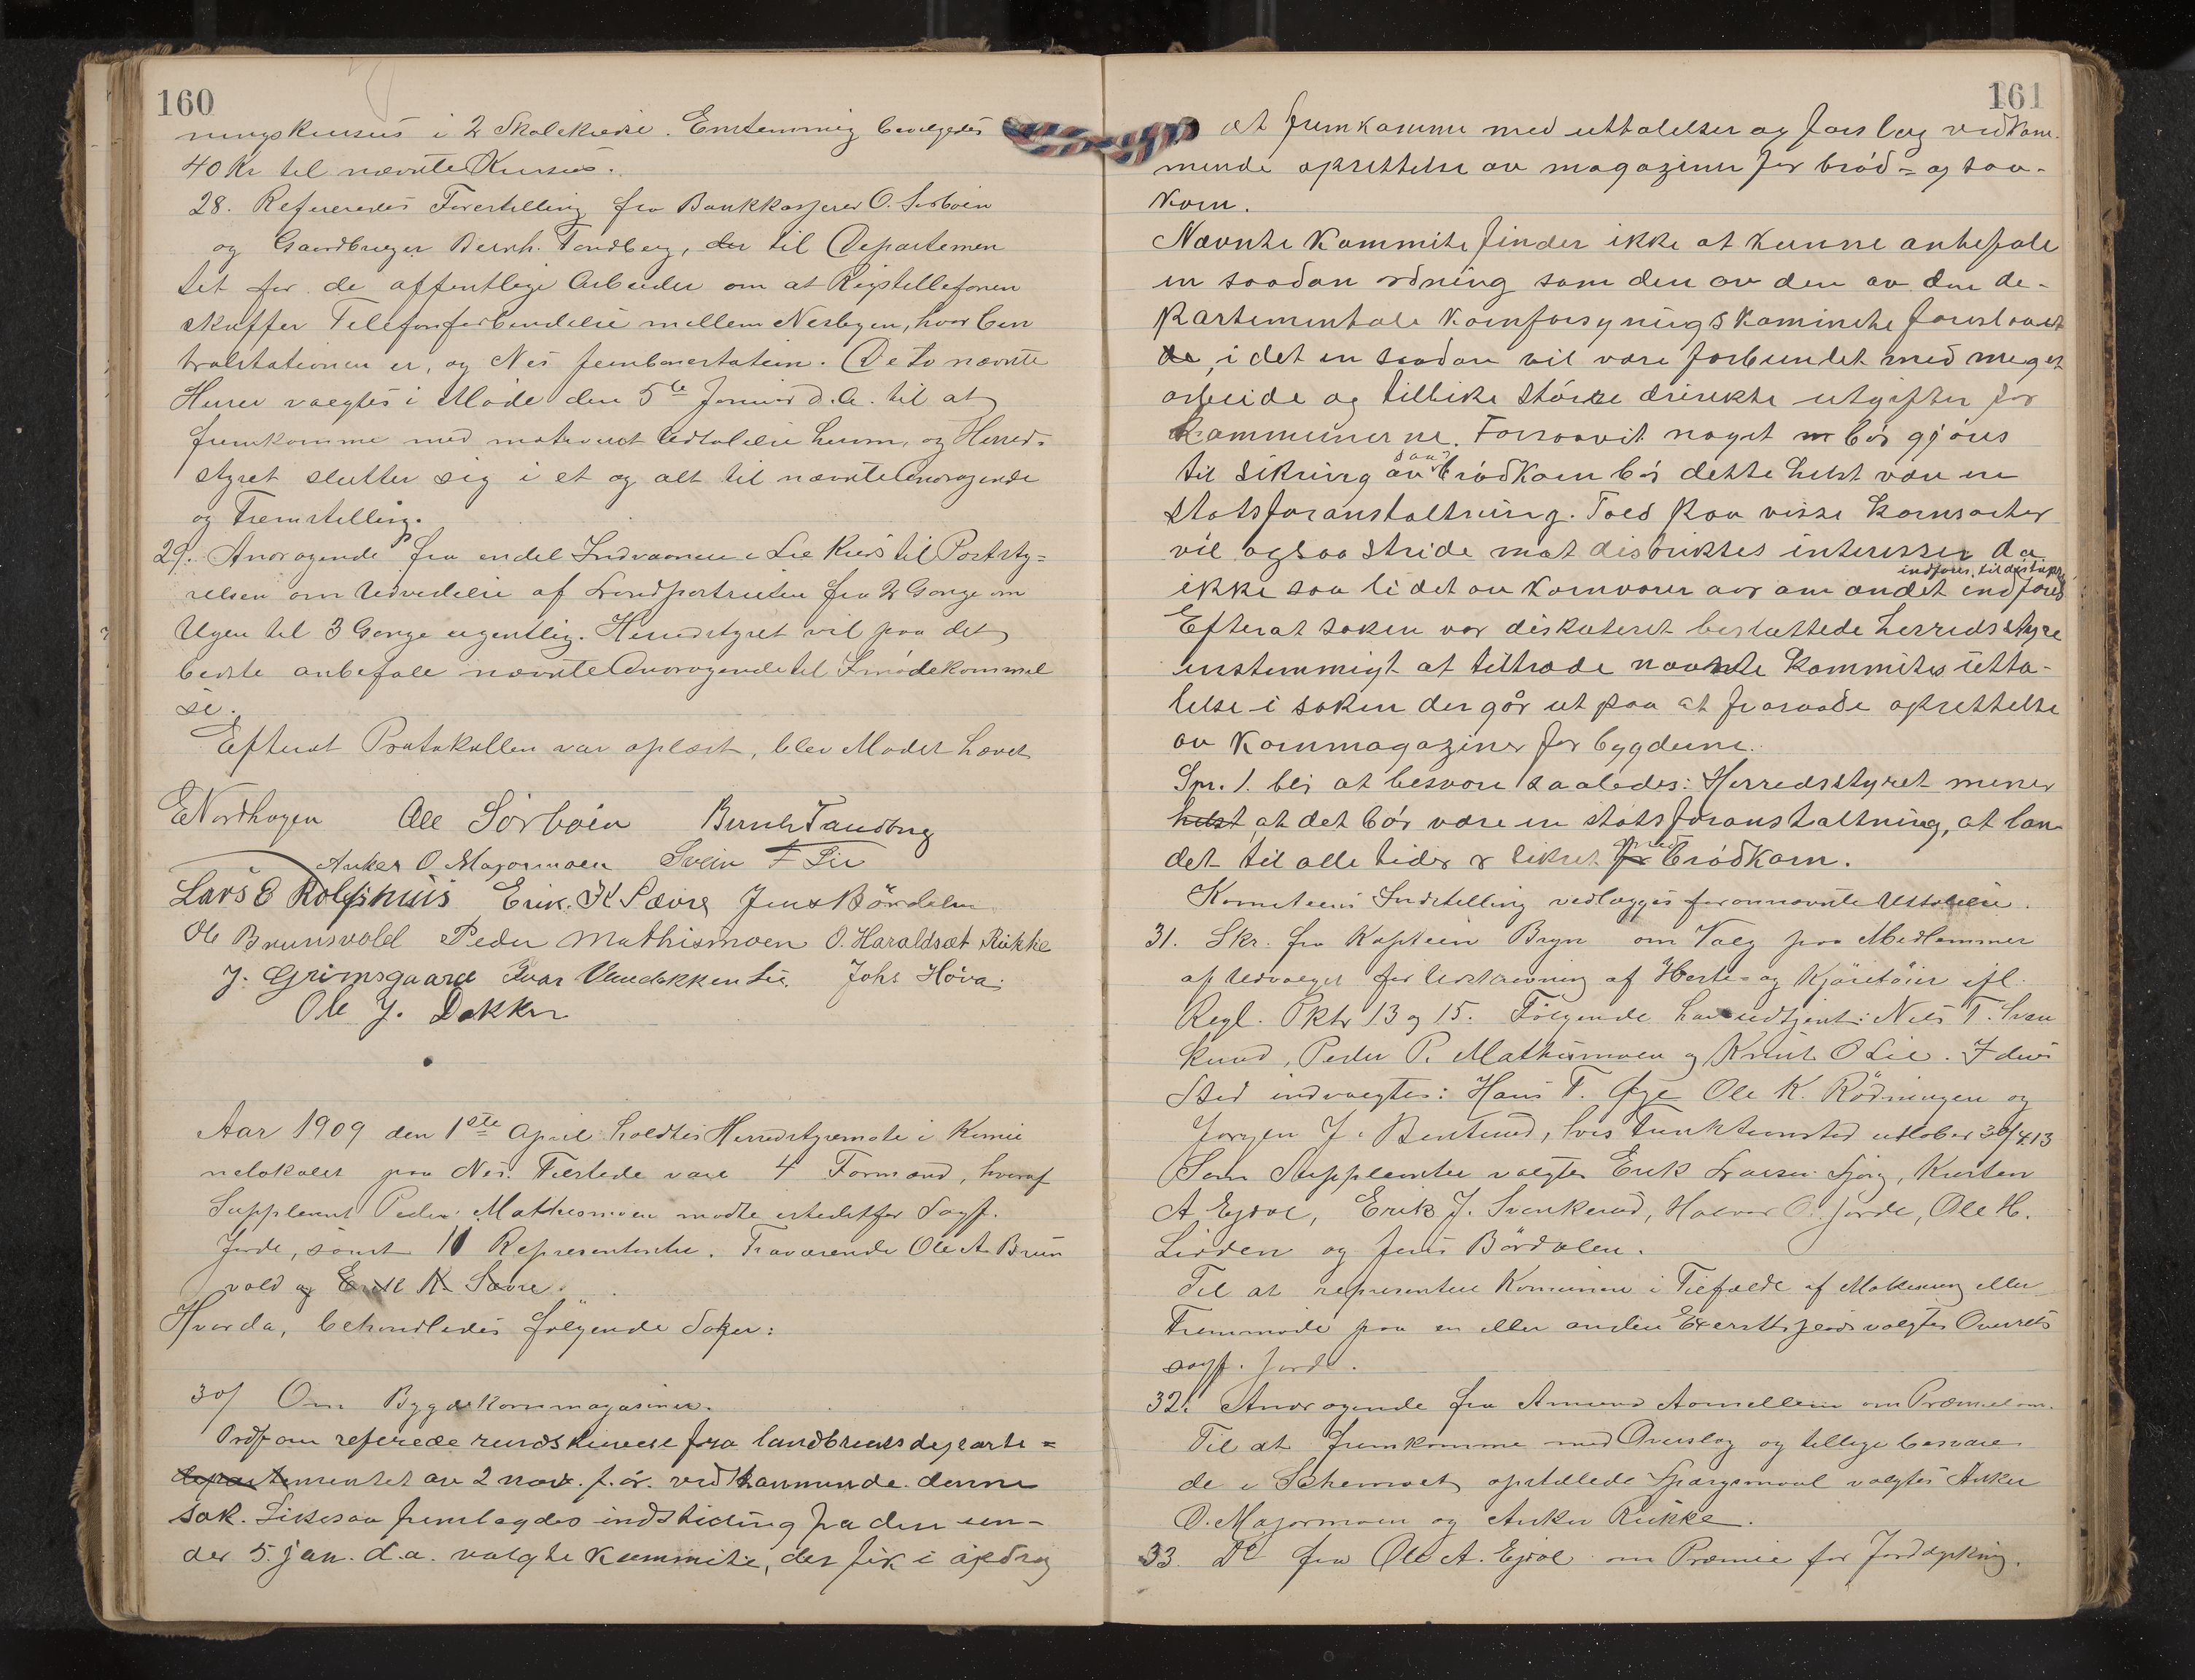 160
ningskursus i 2 Skolekredse. Enstemmig bevilgedes
40 Kr til nævnte Kursus.
28. Refereredes Forestilling fra Bankkasserer O. Sørbøen
og Gaardbruger Bernh. Tandberg, der til Departemen
tet for de offentlige Arbeider om at Rigstelefonen
skaffer Telefonforbindelse mellem Nesbyen, hvor Cen
tralstationen er, og Nes Jernbanestation. De to nævnte
Herrer valgtes i Møde den 5te Januar d.A. til at
fremkomme med motiveret Udtalelse herom, og Herred-
styret slutter sig i et og alt til nævnte Andragende
og Fremstilling.
29. Andragende fra endel Indvaanere i Lie Kreds til Poststy=
relsen om Udvidelse af Landpostruten fra 2 Gange om
Ugen til 3 Gange ugentlig. Herredstyret vil paa det
bedste anbefale nævnte Andragende til Imødekommel
se.
Efterat Protokollen var oplæst, blev Mødet hævet
E Nordhagen Ole Sørbøen Bernh Tandberg
Anker O. Magormoen Svein T Lie
Lars E Rolfshus Erik. K Sævre Jens Børdalen
Ole Brunsvold Peder Mathismoen O. Haraldsæt Rukke
J. Grimsgaard Ivar Lie. Johs Hova.
Ole J. Dokken
Aar 1909 den 1ste April holdtes Herredstyremøte i Kommu
nelokalet paa Nes. Tilstede vare 4 Formænd, hvoraf
Suppleant Peder Mathismoen mødte istedetfor Sagf.
Jorde, samt 11 Representanter. Fraværende Ole A. Brun
vold og Erik K. Sævre.
Hvorda, behandledes følgende Saker:
30/ Om Bygdekornmagasiner.
Ordf om referede rundskrivelse fra landbruksdeparte=
departementet av 2 nov. f.år. vedkommende denne
sak. Likesaa fremlagdes indstilling fra den un-
der 5. jan. d.a. valgte kommite, der fik i opdrag
161
at fremkomme med uttalelser og forslag vedkom-
mende oprettelse av magaziner for brød= og saa-
korn.
Nævnte kommite finder ikke at kunne anbefale
en saadan ordning som den av den av den de-
partementale kornforsyningskommite foreslaaet
de, i det en saadan vil være forbundet med meget
arbeide og tillike større direkte utgifter for
kommunerne. Forsaavit noget bør gjøres
til sikring av saa= brødkorn bør dette helst være en
statsforanstaltning. Told paa visse kornsorter
vil ogsaa stride mot distriktes interesser da
indføres. til distriktet
ikke saa lidet av kornvarer aar om andet indføres
Efterat saken var diskuteret besluttede herredsstyre
enstemmigt at tiltræde nævnte kommites utta-
lelse i saken der går ut paa at fraraade oprettelse
av kornmagaziner for bygderne.
Spr. 1. blir at besvare saaledes: Herredsstyret mener
helst at det bør være en statsforanstaltning, at lan
det til alle tider er sikret for med brødkorn.
Komiteens Indstilling vedlægges forannævnte Uttalelse.
31. Skr. fra Kaptein Bryn om Valg paa Medlemmer
af Udvalget for Udskrivning af Heste- og Kjøretøier ifl.
Regl. Pkt 13 og 15. Følgende har udtjent: Nils T. Sven
kerud, Peder P. Mathismoen og Knut O Lie. I deres
Sted indvalgtes: Hans T. Øye Ole K. Rødningen og
Jørgen J. Bentsrud, hvis Funktionstid utløber 30/4.13
Som Suppleanter valgtes Erik Larsen Sjong, Kirsten
A Ejdal, Erik J. Svenkerud, Halvor O. Jorde, Ole H.
Lidden og Jens Børdalen.
Til at representere Kommunen i Tilfælde af Møtesøkning eller
Fremmøde paa en eller anden Exersitsplads valgtes Overrets
sagf. Jorde.
32. Andragende fra Amund Aavestien om Præmie om.
Til at fremkomme med Overslag og tillige besvare
de i Schemaet opstillede Spørgsmaal valgtes Anker
O. Magormoen og Anker Rukke.
33. Do fra Ole A. Ejdal om Præmie for Jorddyrkning.